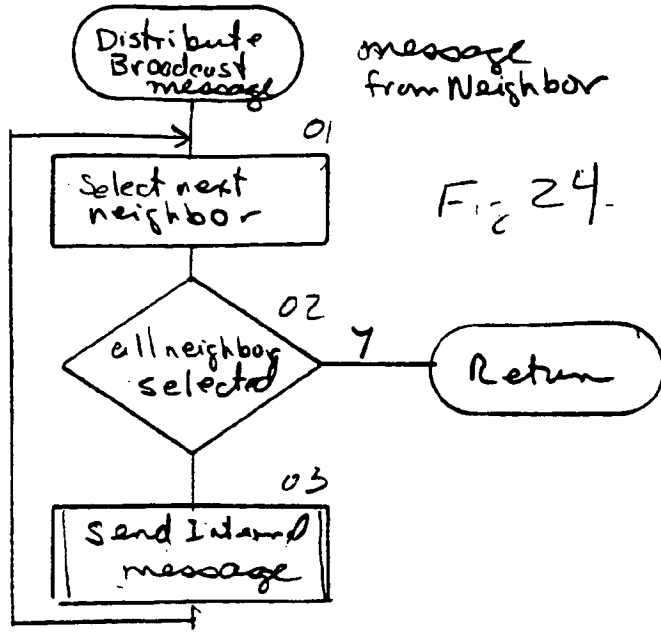 Distribute
Broadcast
message
message
from Neighbor
01
Select next
neighbor
Fig 24.
02
all neighbor
selected
Y
Return
03
Send Internal
message